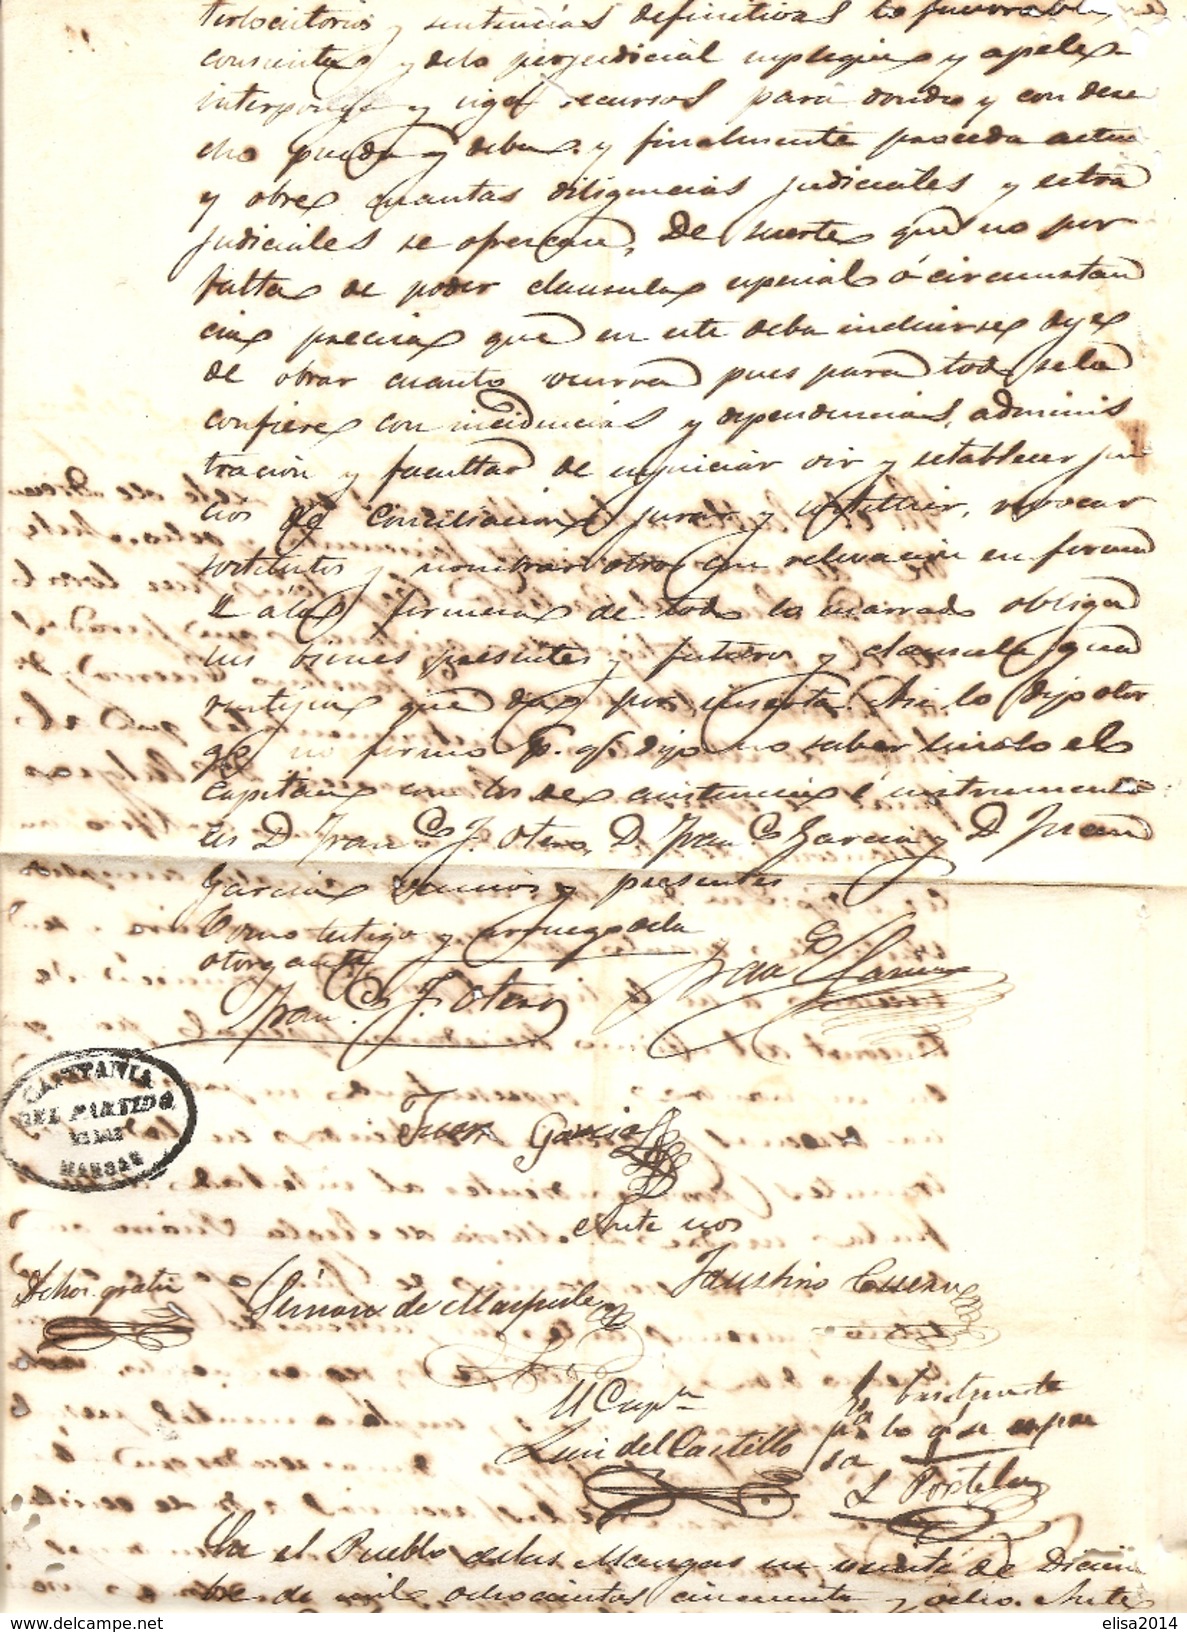 terlocutorios y sentencias definitivas lo favorable
consienta y delo perjudicial suplique y apele
interponga y siga recursos para donde y con dere
cho pueda y deba y finalmente proceda actue
y obre cuantas diligencias judiciales y estra
judiciales se ofrescan, De suerte que no por
falta de poder clausula especial ó circunstan
cia precisa que en este deba incluirse deje
de obrar cuanto ocurra pues para todo sela
confiere con incidencias y dependencias, adminis
tracion y facultad de enjuiciar oir y establecer jui
cios de conciliacion jurar y sostituir, revocar
sostitutos y nombrar otros con relevacion en forma
Y álas firmeza de todo lo narrado obliga
sus bienes presentes y futuros y clausula gua
rentijia que da por inserta. Asi lo dijo otor
gó no firmo p. q. dijo no saber hisolo el
Capitan con los de asistencia é instrumenta
les D Fran.co J. Otero, D Fran.co Garcia y D Juan
Garcia vecinos y presentes
Como testigo y arruego dela
otorgante
Fran.co Garcia
Fran.co J. Otero
CAPITANIA
DEL PARTIDO
DE LAS
MANGAS
Juan Garcia
Ante nos
Faustino Cuervo
Dchos. gratis
Simon de
El Cap.n
Luis del Castillo
Es bastante
para lo q. se espre
sa
L Portela
En el Pueblo delas Mangas en veinte de Diciem
bre de mil ochocientos cincuenta y ocho. Ante
elisa2014
delcampe.net
elisa2014